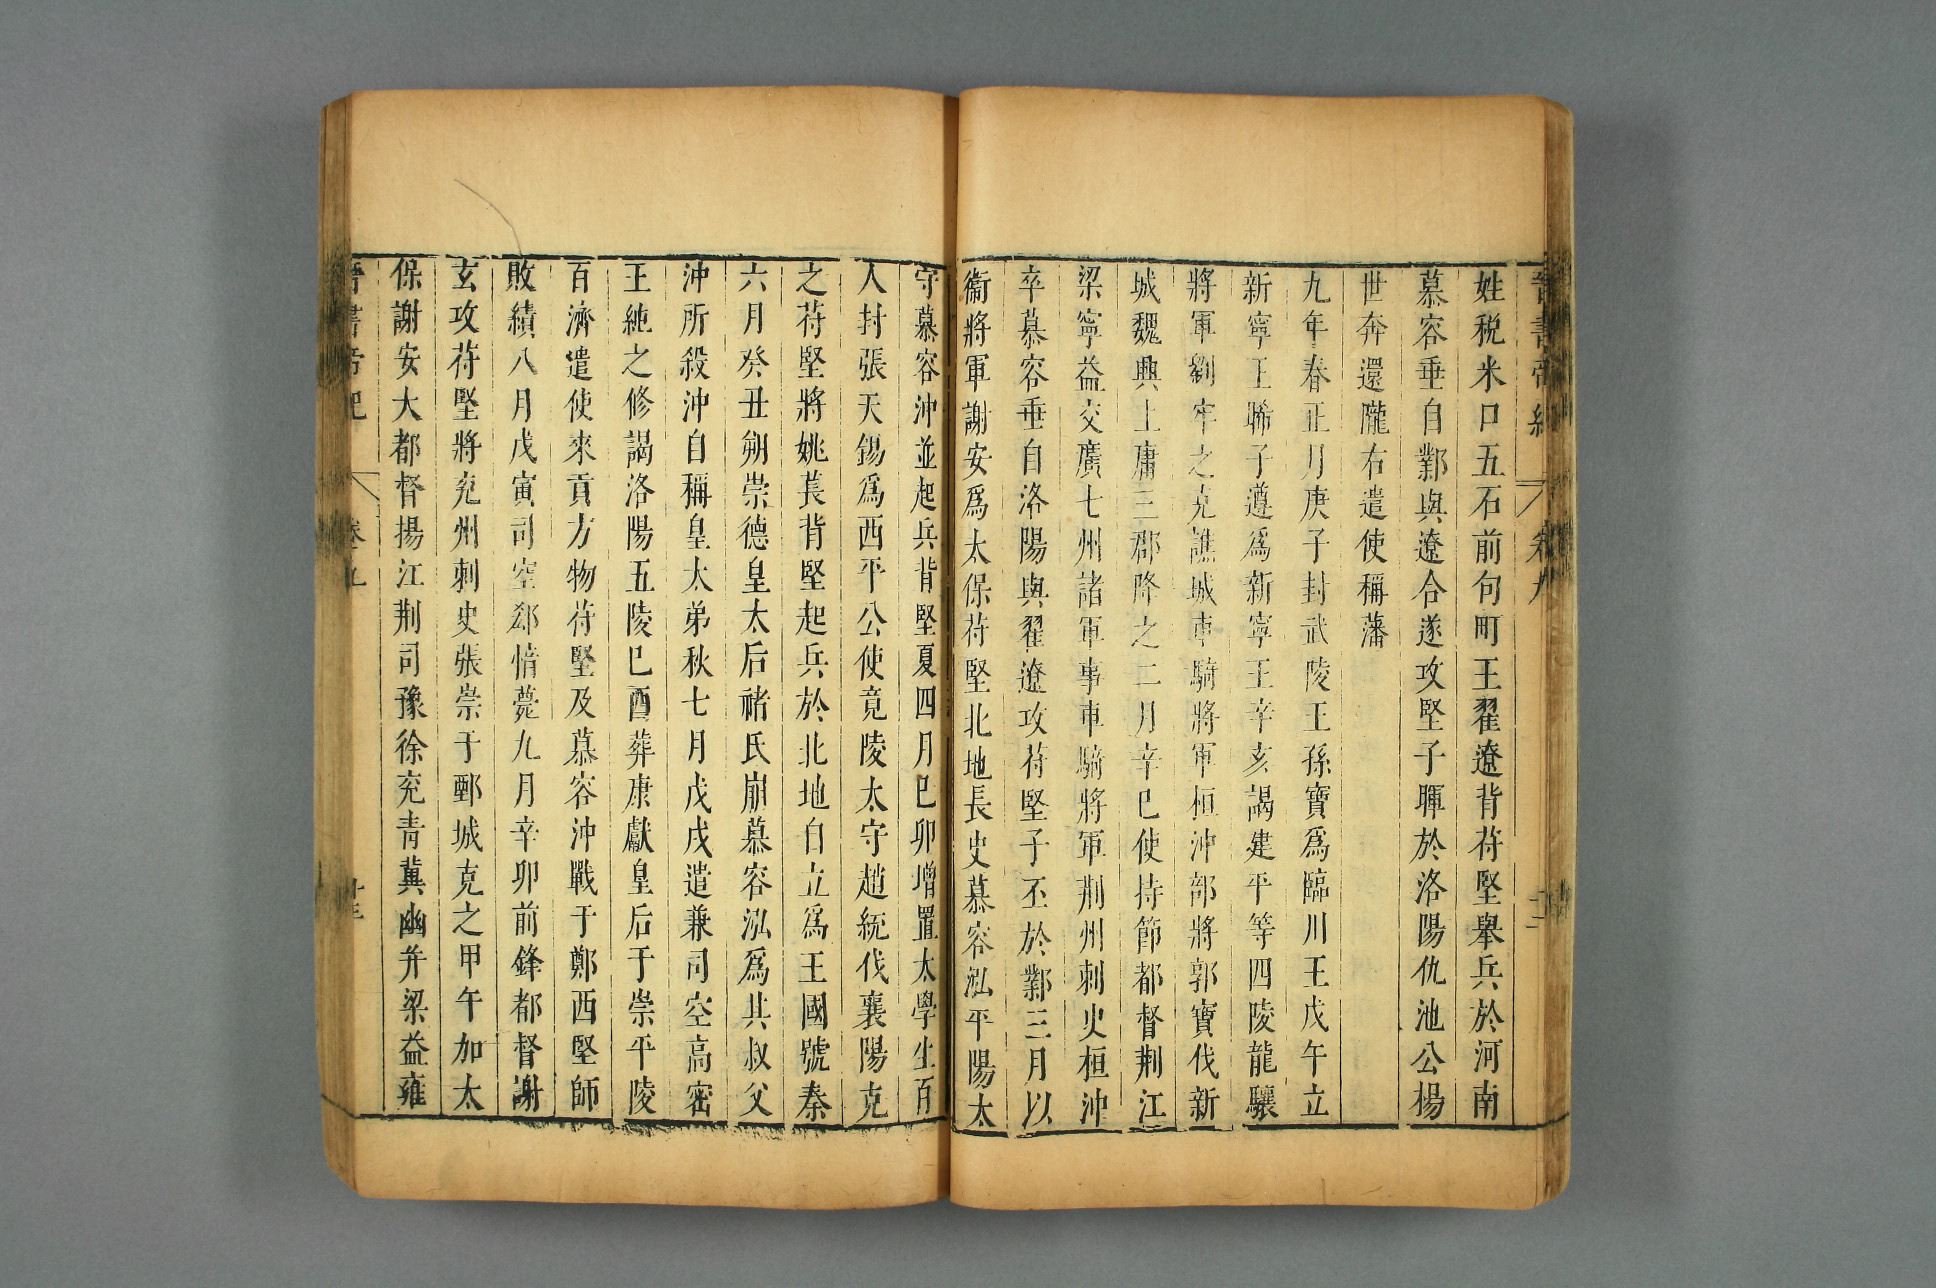 晉書帝紀 卷九 十二
姓稅米口五石前句町王翟遼背苻堅舉兵於河南
慕容垂自鄴與遼合遂攻堅子暉於洛陽仇池公楊
世奔還隴右遣使稱藩
九年春正月庚子封武陵王孫寶爲臨川王戊午立
新寧王晞子遵爲新寧王辛亥謁建平等四陵龍驤
將軍劉牢之克譙城車騎將軍桓沖部將郭寶伐新
城魏興上庸三郡降之二月辛巳使持節都督荆江
梁寧益交廣七州諸軍事車騎將軍荆州刺史桓沖
卒慕容垂自洛陽與翟遼攻苻堅子丕於鄴三月以
衞將軍謝安爲太保苻堅北地長史慕容泓平陽太
守慕容沖並起兵背堅夏四月巳卯增置太學生百
人封張天錫爲西平公使竟陵太守趙統伐襄陽克
之苻堅將姚萇背堅起兵於北地自立爲王國號秦
六月癸丑朔崇德皇太后禇氏崩慕容泓爲其叔父
沖所殺沖自稱皇太弟秋七月戊戌遣兼司空高密
王純之修謁洛陽五陵巳酉葬康獻皇后于崇平陵
百濟遣使來貢方物苻堅及慕容沖戰于鄭西堅師
敗績八月戊寅司空郄愔薨九月辛卯前鋒都督謝
玄攻苻堅將兗州刺史張崇于鄄城克之甲午加太
保謝安大都督揚江荆司豫徐兗青冀幽并梁益雍
晉書帝紀 卷九 十三